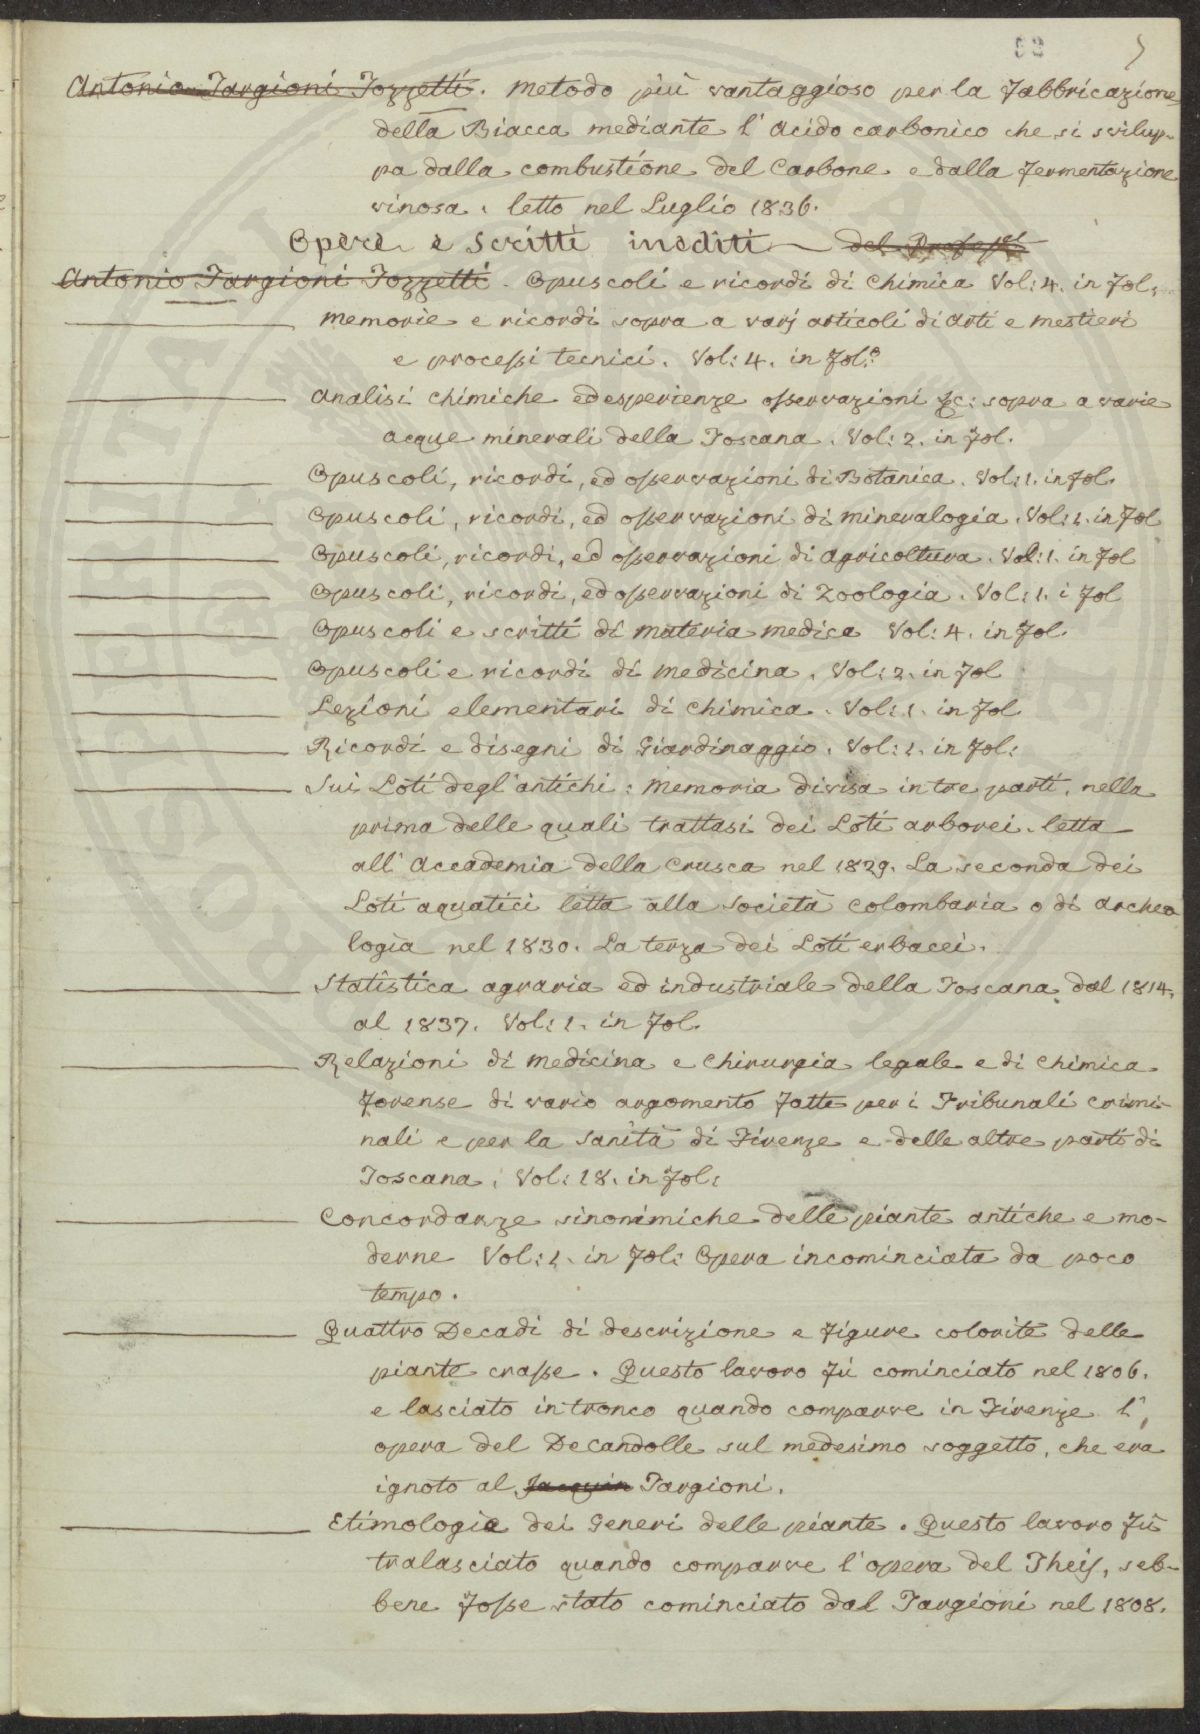 92 5
Antonio Targioni Tozzetti. Metodo più vantaggioso per la Fabbricazione
della Biacca mediante l'Acido carbonico che si svilup-
pa dalla combustione del Carbone e dalla Fermentazione
vinosa. letto nel Luglio 1836.
Opere e Scritti inediti del Profess.
Antonio Targioni Tozzetti. Opuscoli e ricordi di Chimica Vol: 4. in Fol.
Memorie e ricordi sopra a varj articoli di Arti e Mestieri
e processi tecnici. Vol: 4. in Fol.º
Analisi chimiche ed esperienze osservazioni &c: sopra a varie
acque minerali della Toscana. Vol: 2. in Fol.
Opuscoli, ricordi, ed osservazioni di Botanica. Vol: 1. in Fol.
Opuscoli, ricordi, ed osservazioni di Mineralogia. Vol: 1. in Fol
Opuscoli, ricordi, ed osservazioni di Agricoltura. Vol: 1. in Fol
Opuscoli, ricordi, ed osservazioni di Zoologia. Vol: 1. i Fol
Opuscoli e scritti di Materia medica Vol: 4. in Fol.
Opuscoli e ricordi di Medicina. Vol: 2. in Fol
Lezioni elementari di Chimica. Vol: 1. in Fol
Ricordi e disegni di Giardinaggio. Vol: 1. in Fol:
Sui Loti degl'antichi: Memoria divisa in tre parti, nella
prima delle quali trattasi dei Loti arborei. letta
all'Accademia della Crusca nel 1829. La seconda dei
Loti aquatici letta alla Società Colombaria o di Archeo
logia nel 1830. La terza dei Loti erbacei.
Statistica agraria ed industriale della Toscana dal 1814.
al 1837. Vol: 1. in Fol.
Relazioni di Medicina e Chirurgia legale e di Chimica
Forense di vario argomento fatte per i Tribunali crimi-
nali e per la Sanità di Firenze e delle altre parti di
Toscana. Vol: 18. in Fol:
Concordanze sinonimiche delle piante antiche e mo-
derne Vol: 1. in Fol: Opera incominciata da poco
tempo.
Quattro Decadi di descrizione e Figure colorite delle
piante crasse. Questo lavoro fù cominciato nel 1806.
e lasciato in tronco quando comparve in Firenze l'
opera del Decandolle sul medesimo soggetto, che era
ignoto al Jacquin Targioni.
Etimologia dei Generi delle piante. Questo lavoro fù
tralasciato quando comparve l'opera del Theis, seb-
bene fosse stato cominciato dal Targioni nel 1808.